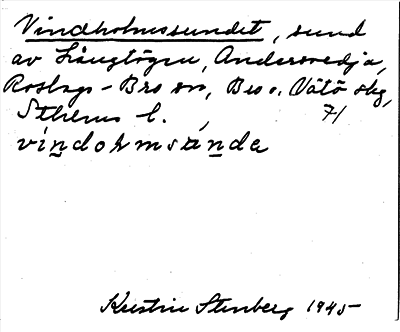 Vindholmssundet, sund
av Långtögen, Andersvedja,
Roslags-Bro sn, Bro o. Vätö skg,
Sthlms l. 71
vindoḥmsunda
Kerstin Stenberg 1945